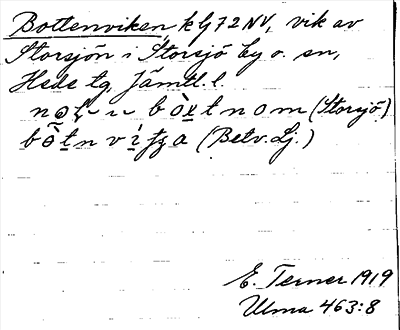 Bottenviken, k G 72 NV, vik av
Storsjön i Storsjö by o. sn,
Hede tg. Jämtl. l.
bòtnom (Storsjö)
bòtnvìka (Betv. Lj.)
E. Terner 1919
Ulma 463:8